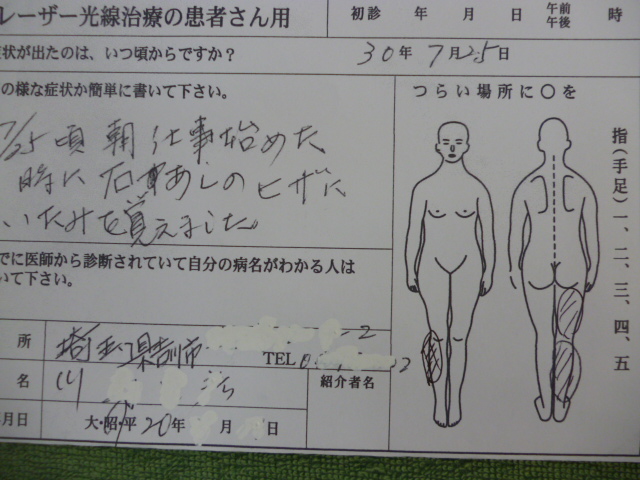 レーザー光線治療の患者さん用 初診 年 月 日 午前 午後 時
症状が出たのは、いつ頃からですか? 30年7月25日
の様な症状か簡単に書いて下さい。
つらい場所に○を
7/25頃 朝 仕事始めた
時に右あしのヒザに
いたみを覚えました
指(手足)一、二、三、四、五
でに医師から診断されていて自分の病名がわかる人は
いて下さい。
所 埼玉県 市 2
TEL 0 2
名 川 治
紹介者名
月日 大・昭・平 20年 月 日